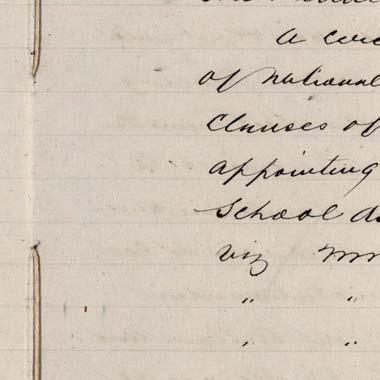 A
of national
Clauses of
appointing
School
viz
" "
" "